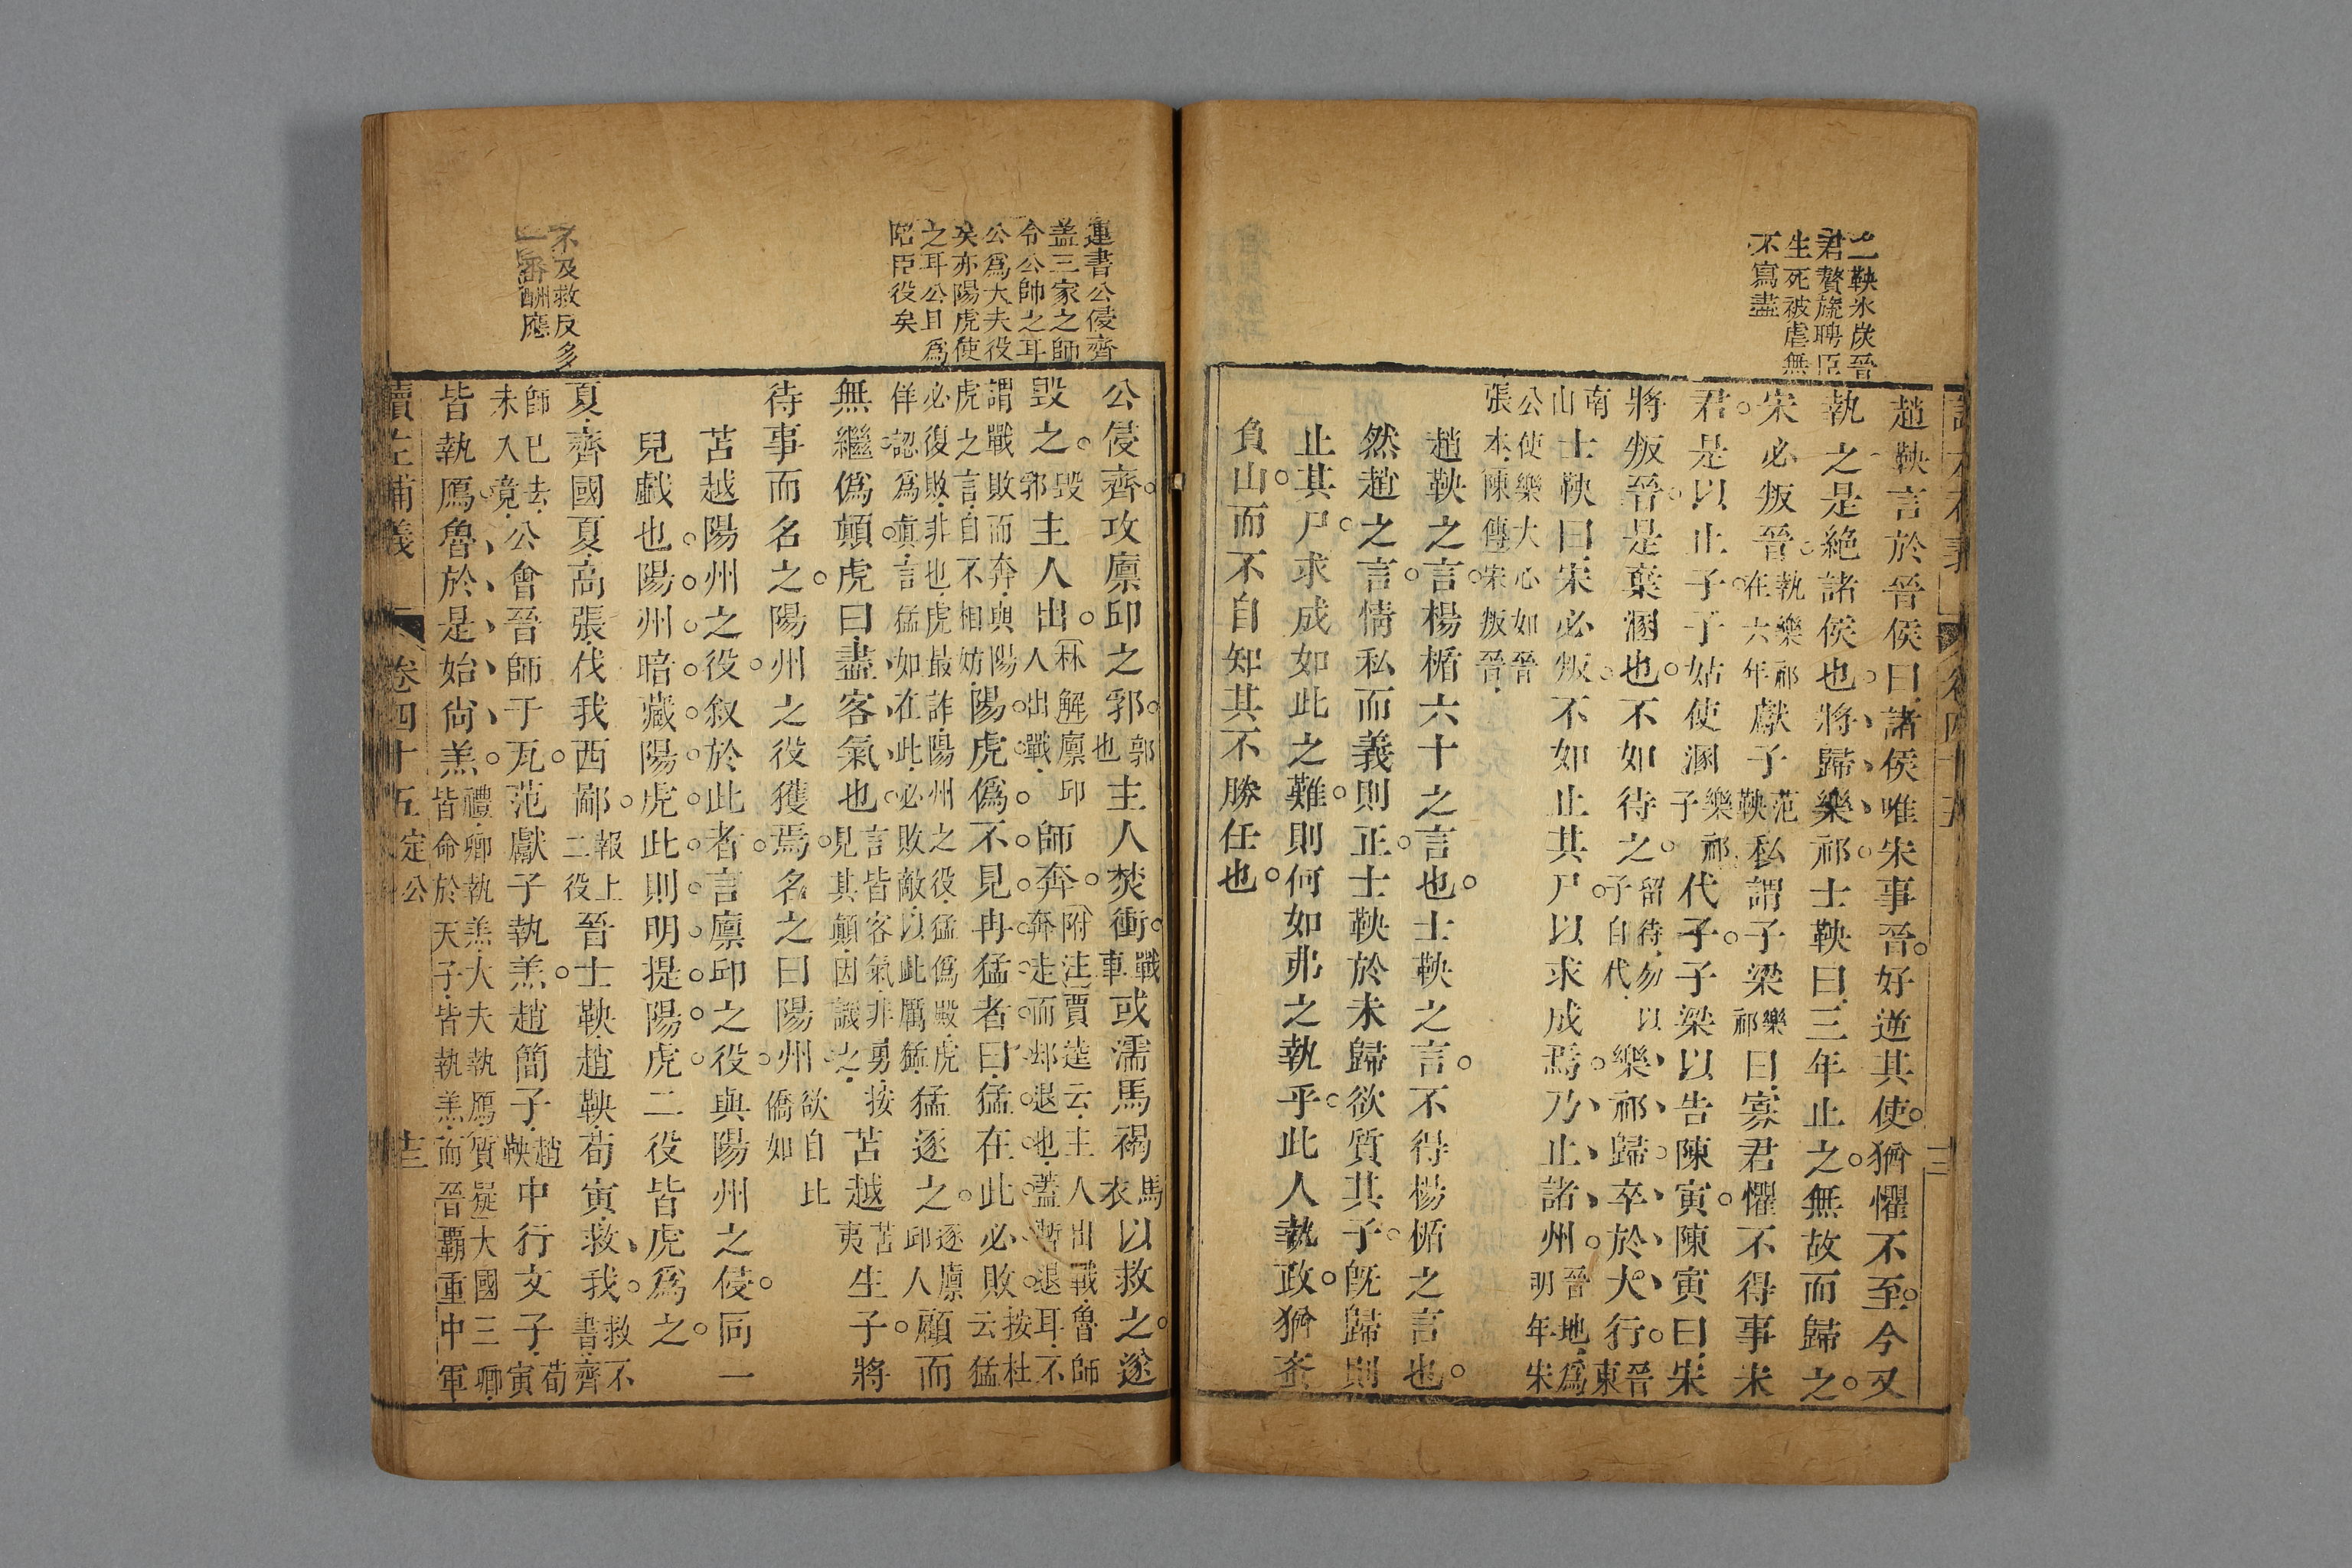 二鞅氷炭晉
君贅旒聘臣
生死被虐無
不寫盡
趙鞅言於晉侯曰諸侯唯宋事晉好逆其使猶懼不至今又
執之是絶諸侯也將歸樂祁士鞅曰三年止之無故而歸之
宋必叛晉執樂祁在六年獻子范鞅私謂子梁樂祁曰寡君懼不得事宋
君是以止子子姑使溷樂祁子代子子梁以告陳寅陳寅曰宋
將叛晉是棄溷也不如待之留待勿以子自代樂祁歸卒於大行晉東
南山士鞅曰宋必叛不如止其尸以求成焉乃止諸州晉地爲明年宋
公使樂大心如晉張本陳傅宋叛晉
趙鞅之言楊楯六十之言也士鞅之言不得楊楯之言也
然趙之言情私而義則正士鞅於未歸欲質其子旣歸則
止其尸求成如此之難則何如弗之執乎此人執政猶蚉
負山而不自知其不勝任也
連書公侵齊
盖三家之師
令公帥之耳
公爲大夫役
矣亦陽虎使
之耳公且爲
陪臣役矣
公侵齊攻廩邱之郛郭也主人焚衝戰車或濡馬褐馬衣以救之遂
毀之毀郛主人出林解廩邱人出戰師奔附注賈逵云主人出戰魯師奔走而郤退也蓋暫退耳不
謂戰敗而奔與陽虎之言自不相妨陽虎僞不見冉猛者曰猛在此必敗按杜云猛
必復敗非也虎最詐陽州之役猛僞殿虎佯認爲眞言猛如在此必敗敵以此厲猛猛逐之逐廩邱人顧而
無繼僞顛虎曰盡客氣也言皆客氣非勇按見其顛因譏之苫越苫夷生子將
待事而名之陽州之役獲焉名之曰陽州欲自比僑如
苫越陽州之役叙於此者言廩邱之役與陽州之侵同一
兒戲也陽州暗藏陽虎此則明提陽虎二役皆虎爲之
不及救反多
一番酬應
夏齊國夏高張伐我西鄙報上二役晉士鞅趙鞅荀寅救我救不書齊
師已去未入竟公會晉師于瓦范獻子執羔趙簡子趙鞅中行文子荀寅
皆執鴈魯於是始尙羔禮卿執羔大夫執鴈質疑大國三卿皆命於天子皆執羔而晉覇重中軍
讀左補義
卷四十五
定公